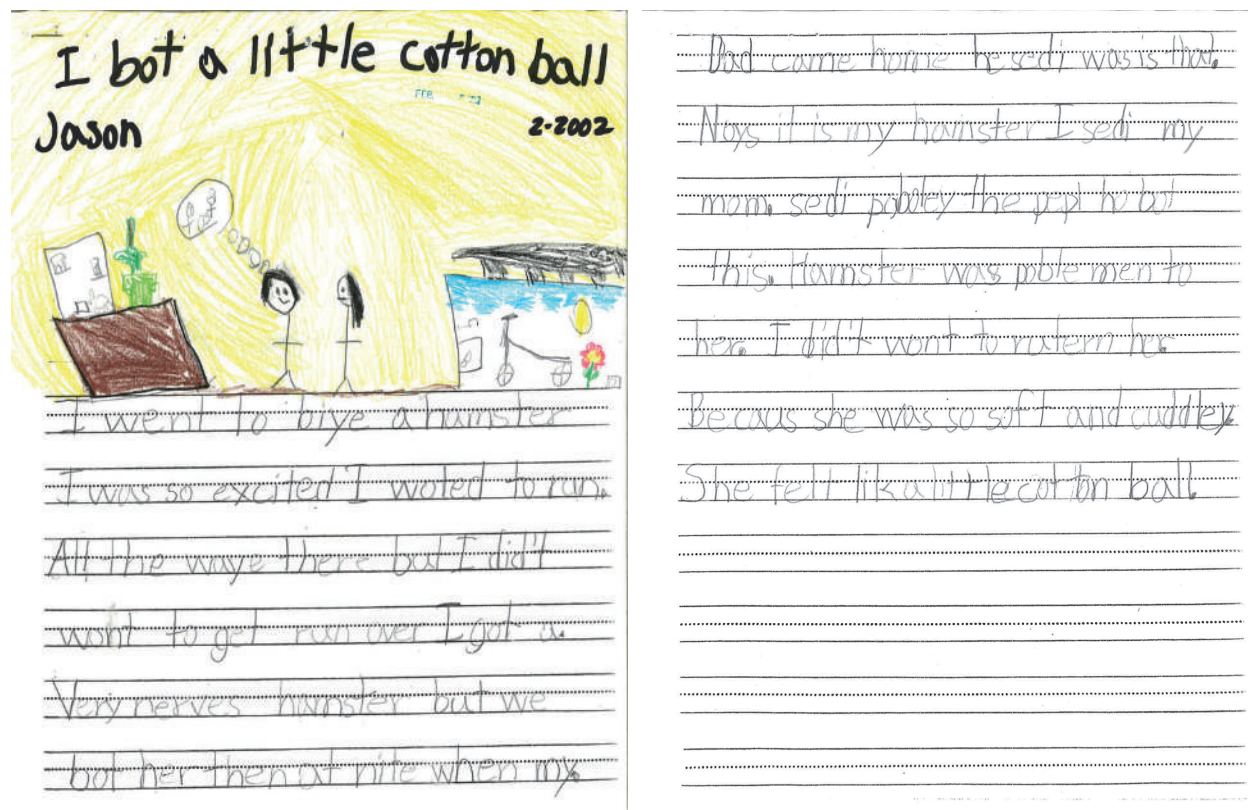 I bot a little cotton ball
FEB
Jason
2-2002
I went to biye a hamster
I was so excited I woted to run.
All the waye there but I did't
wont to get run over I got a.
Very nerves hamster but we
bot her then at nite when my.
Dad came home he sedi was is that.
Noys it is my hamster I sedi my
mom. sedi pobley the pepl ho bot
this. Hamster was poble men to
her. I did't wont to rutern her.
Becaus she was so soft and cuddley.
She felt lik a little cotton ball.